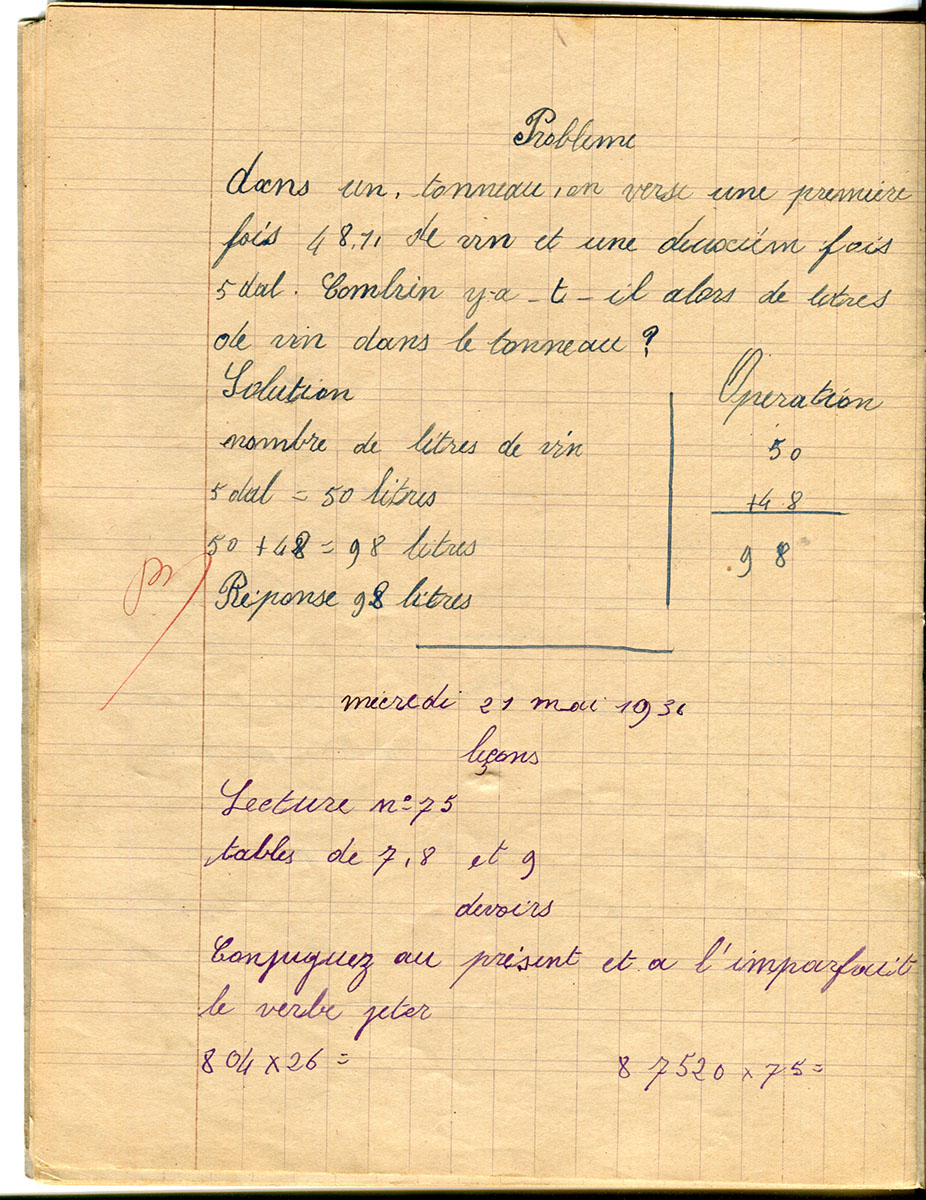 Probleme
dans un, tonneau, on verse une première
fois 48, l, de vin et une deuxiém fois
5 dal. Combrin y-a-t-il alors de litres
de vin dans le tonneau ?
Solution
Operation
nombre de litres de vin
50
5 dal = 50 litres
+48
50 + 48 = 98 litres
98
Réponse 98 litres
mecredi 21 mai 1936
leçons
Lecture n° 75
tables de 7, 8 et 9
devoirs
Conjuguez au présent et a l'imparfait
le verbe jeter
804 x 26 =
87520 x 75 =